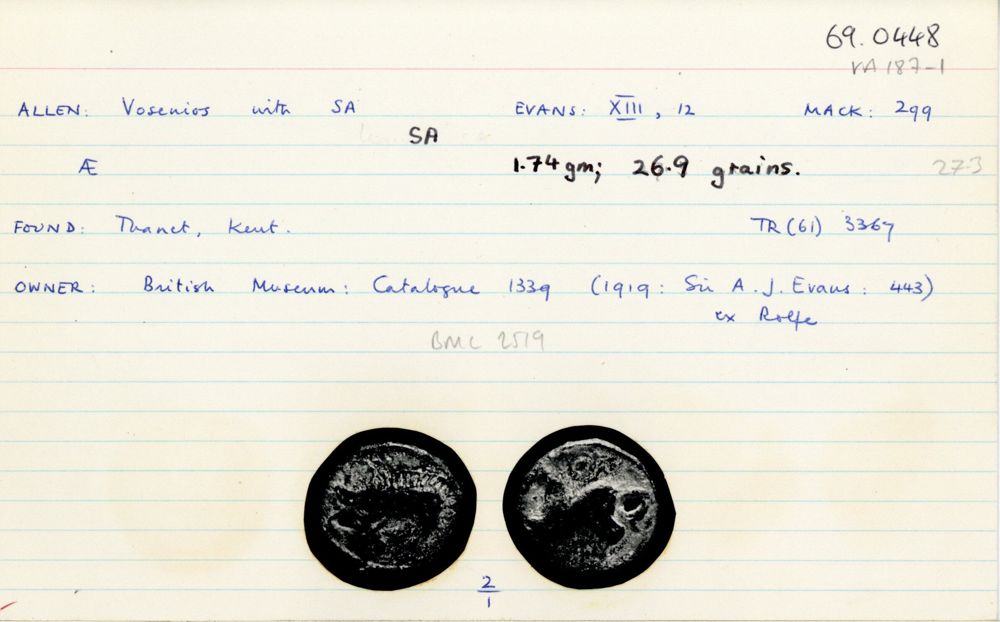 69.0448
VA 187-1
ALLEN: Vosenios with SA EVANS: XIII, 12 MACK: 299
SA
Æ 1.74 gm; 26.9 grains. 27.3
FOUND: Thanet, Kent. TR (61) 3367
OWNER: British Museum: Catalogue 1339 (1919: Sir A. J. Evans: 443)
ex Rolfe
BMC 2519
2
1